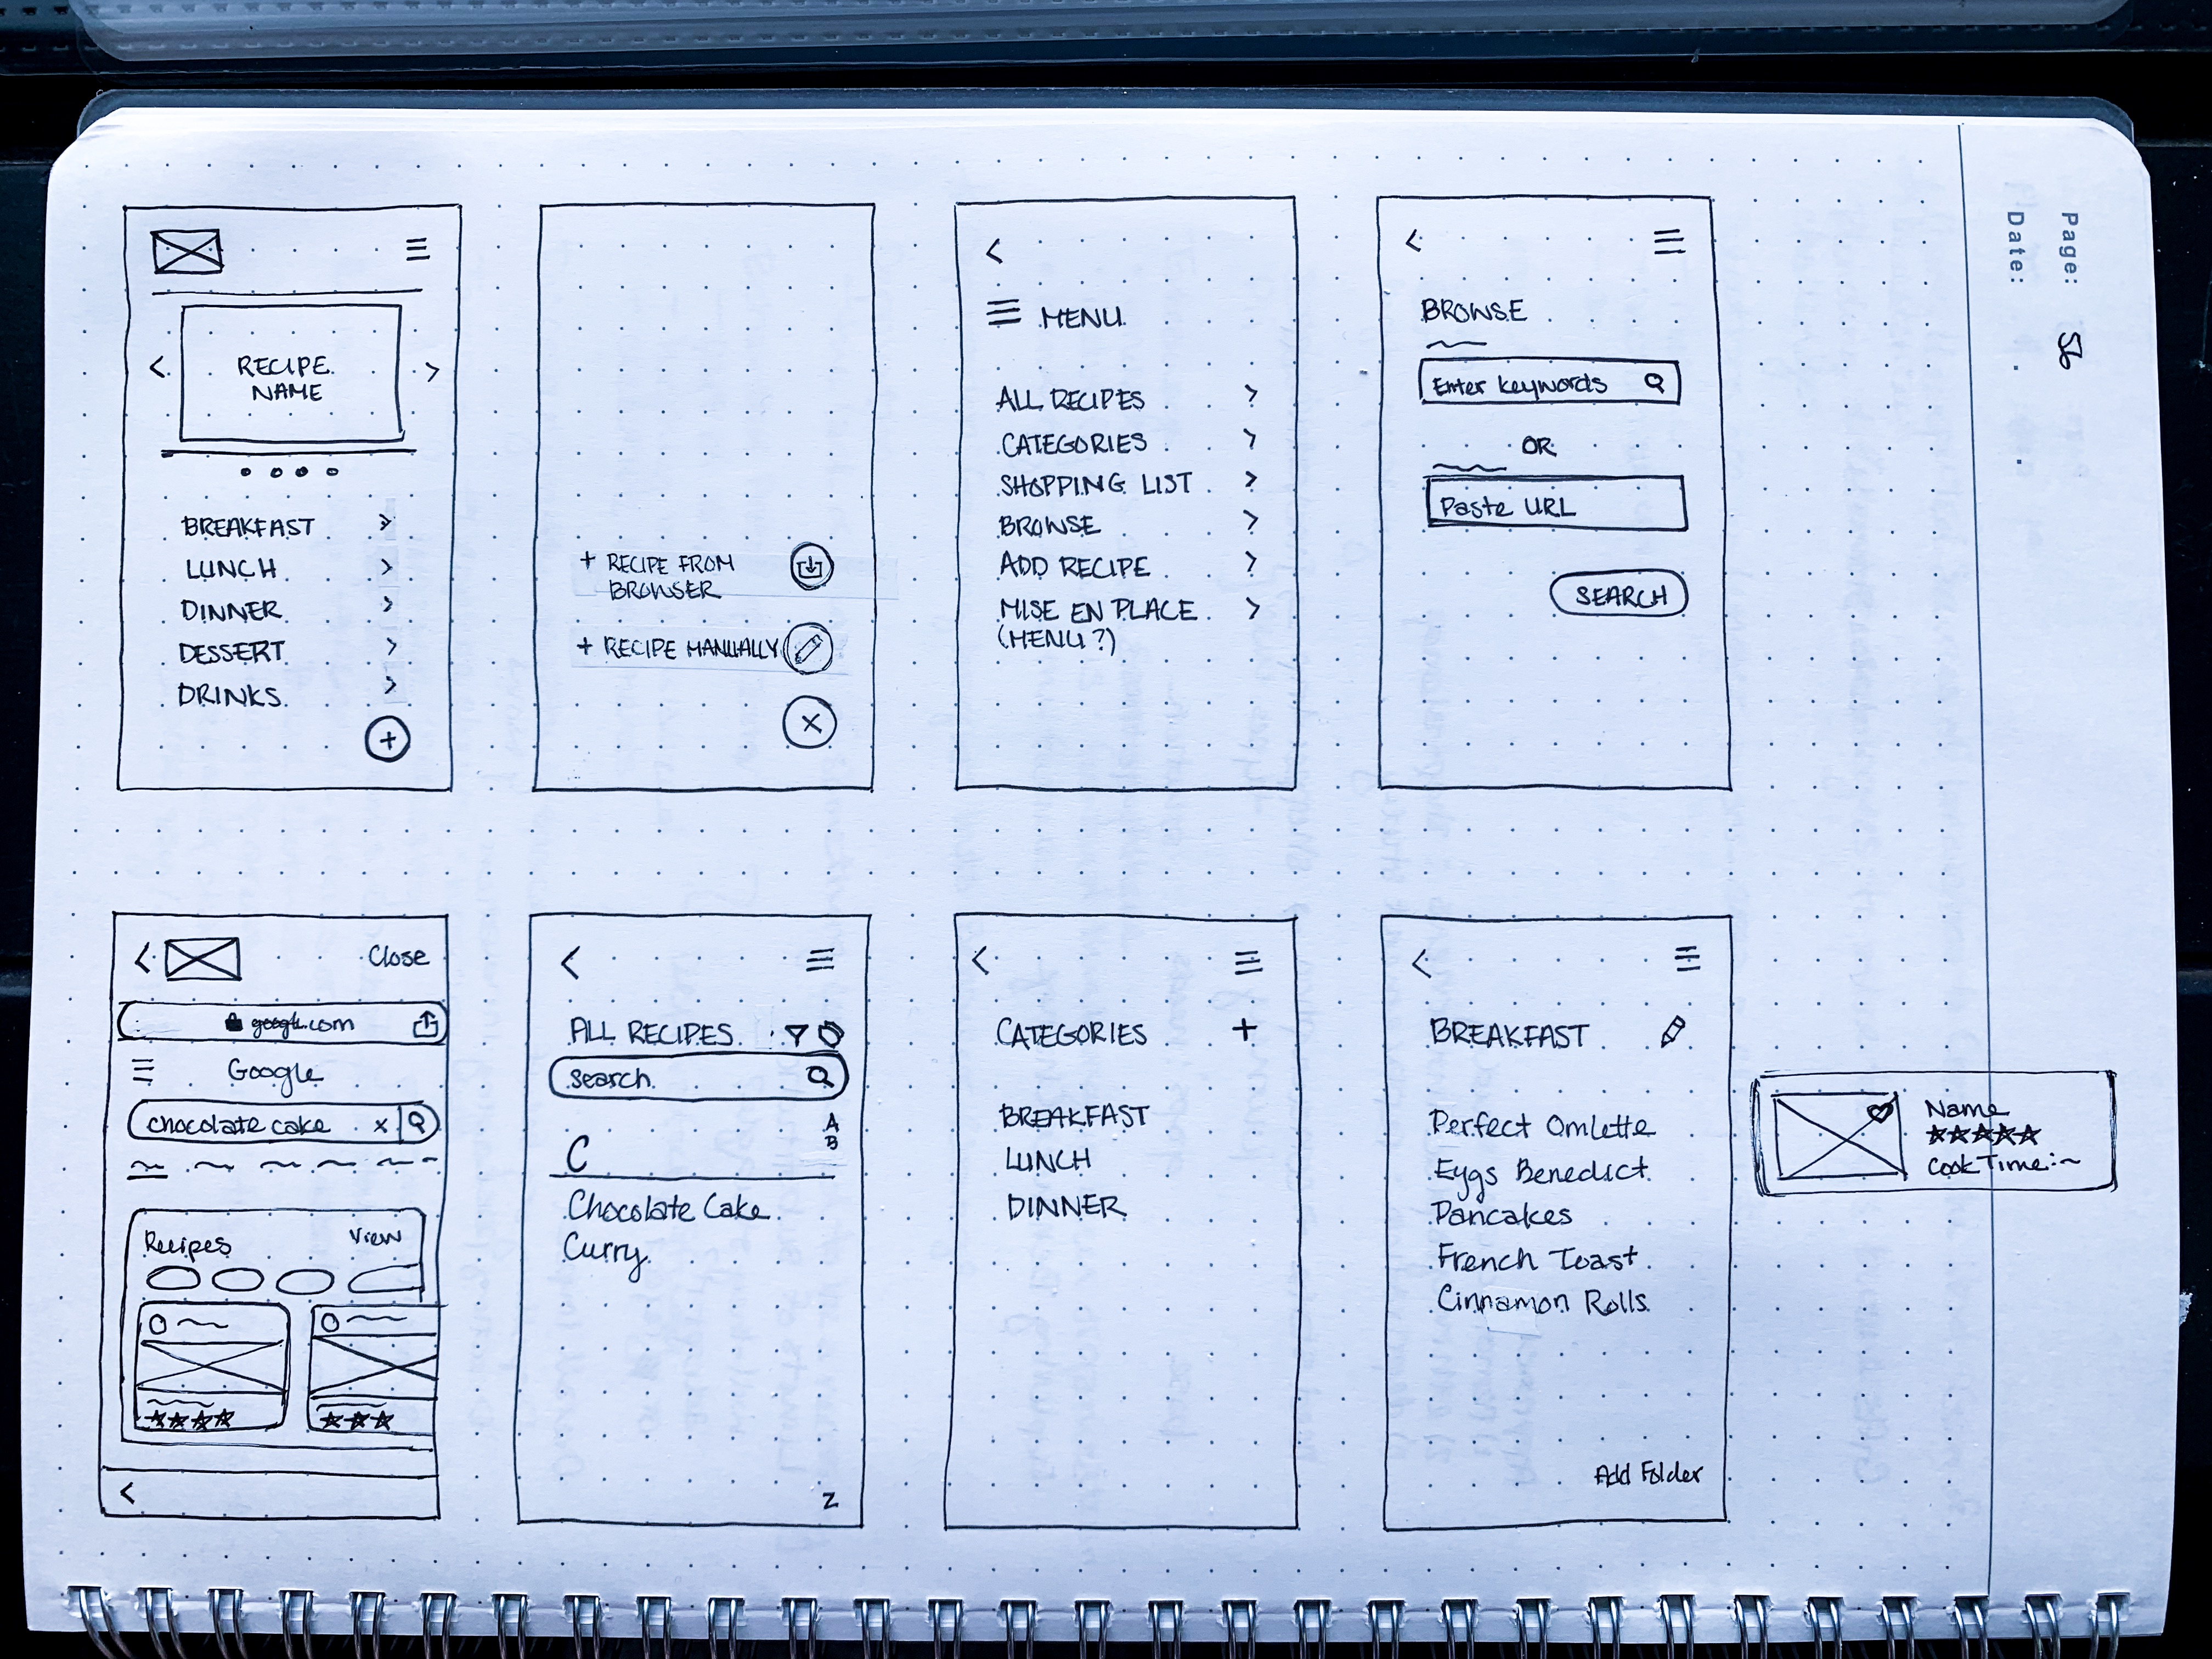 RECIPE
NAME
BREAKFAST
LUNCH
DINNER
DESSERT
DRINKS
+ RECIPE FROM
BROWSER
+ RECIPE MANUALLY
MENU
ALL RECIPES
CATEGORIES
SHOPPING LIST
BROWSE
ADD RECIPE
MISE EN PLACE
(MENU?)
BROWSE
Enter keywords
OR
Paste URL
SEARCH
Page: 56
Date:
Close
google.com
Google
chocolate cake x
Recipes View
ALL RECIPES
search
A
B
C
Chocolate Cake
Curry
Z
CATEGORIES +
BREAKFAST
LUNCH
DINNER
BREAKFAST
Perfect Omlette
Eggs Benedict
Pancakes
French Toast
Cinnamon Rolls
Add Folder
Name
Cook Time:~